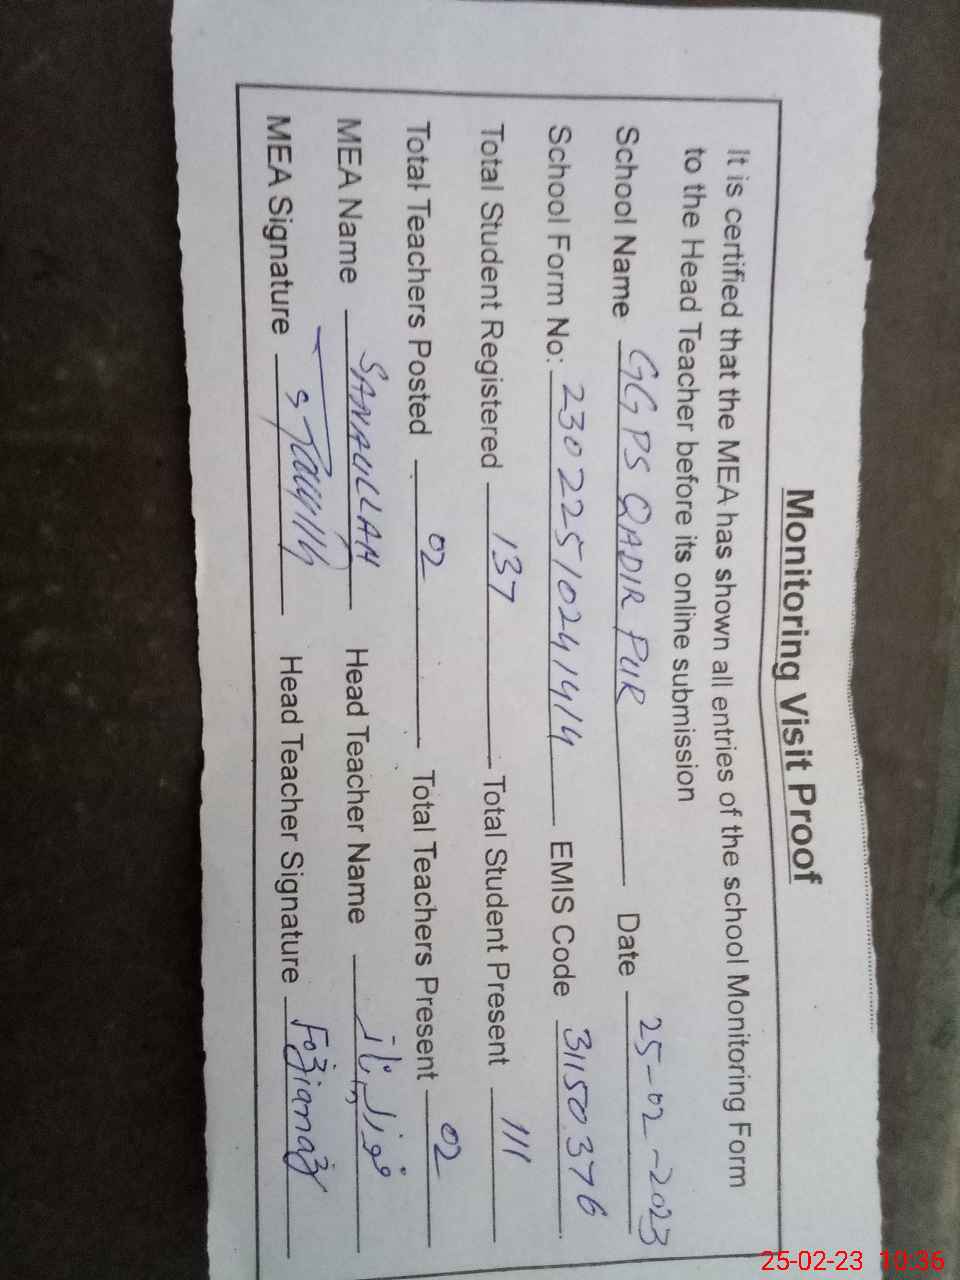 Monitoring Visit Proof
It is certified that the MEA has shown all entries of the school Monitoring Form
to the Head Teacher before its online submission
School Name GGPS QADIR PUR Date 25-02-2023
School Form No: 230225102411414 EMIS Code 31150376
Total Student Registered 137 Total Student Present 111
Total Teachers Posted 02 Total Teachers Present 02
MEA Name SANAULLAH Head Teacher Name فوزیہ ناز
MEA Signature Head Teacher Signature Fozianaz
25-02-23 10:36